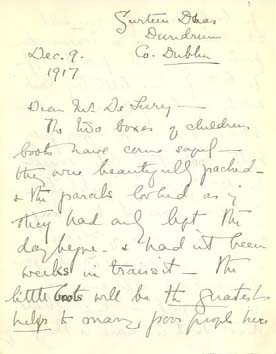 Gurteen Dhas
Dundrum
Co. Dublin
Dec. 9.
1917
Dear Mr De Lury —
The two boxes of childrens
boots have come safely —
they were beautifully packed —
& the parcels looked as if
they had only left the
day before — & had'nt been
weeks in transit — The
little boots will be the greatest
helps to many poor people here